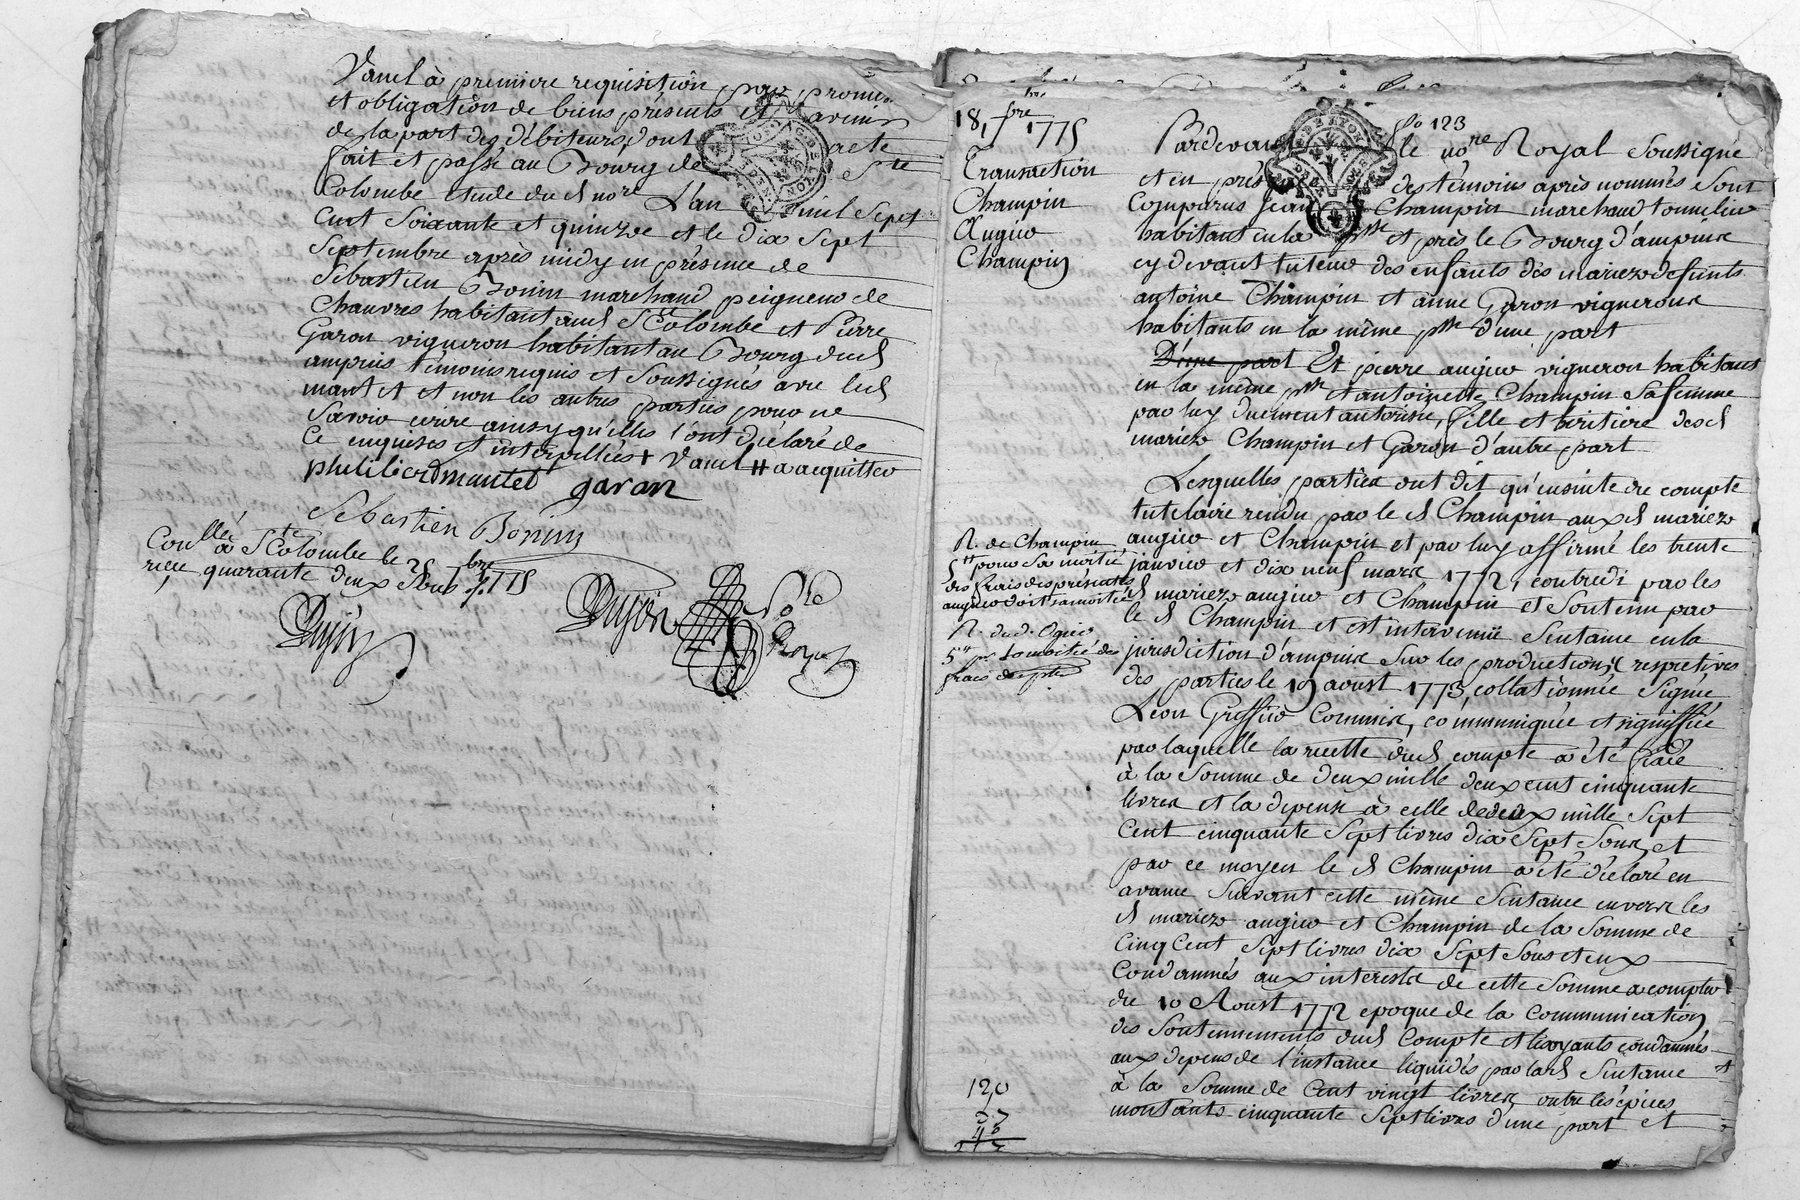 Vanel à premiere requisition, par promes
et obligation de biens présents et avenir
de la part des débiteurs, dont acte
fait et passé au Bourg de Ste
Colombe étude dud nore L'an mil sept
cent soixante et quinze et le dix sept
septembre après midy en présence de
Sébastien Bonin marchand peigneur de
Chanvres habitant aud Ste Colombe et Pierre
Garon vigneron habitant au Bourg dud
ampuis témoins requis et soussignés avec led
mantet et non les autres parties pour ne
savoir ecrire ainsy qu'elles l'ont déclaré de
ce enquises et interpellées + Vanel ++ a acquitter
philibert mantel garon
Sébastien Bonin
Conllé a Ste Colombe le 25 7bre 1775
reçu quarante deux sous
Dujin
Dujin
No re
Royal
18 7bre 1775
Transaction
Champin
Augier
Champin
fo 123
Pardevant le nore Royal soussigné
et en prés des témoins après nommés sont
comparus Jean Champin marchand tonnelier
habitant en la psse et près le Bourg d'ampuis
cy devant tuteur des enfants des mariez defunts
antoine Champin et anne Garon vignerons
habitants en la même psse d'une part
D'une part Et pierre augier vigneron habitant
en la même psse et antoinette Champin sa femme
par luy duement autorisée, fille et héritiere desd
mariez Champin et Garon d'autre part
Lesquelles parties ont dit qu'ensuite de compte
tutelaire rendu par le d Champin aux d mariez
augier et Champin et par luy affirmé les trente
janvier et dix neuf mars 1772, contredi par les
d mariez augier et Champin et soutenu par
le d Champin et est intervenüe sentance en la
jurisdiction d'ampuis sur les productions respectives
des parties le 19 aoust 1773, collationnée signée
Leon Greffier Commis, communiquée et signiffiée
par laquelle la recette dud compte a été fixée
à la somme de deux mille deux cent cinquante
livres et la depense à celle de deux mille sept
cent cinquante sept livres dix sept sous, et
par ce moyen le d Champin a été déclaré en
avance suivant cette même sentance envers les
d mariez augier et Champin de la somme de
cinq cent sept livres dix sept sous et eux
condamnés aux interests de cette somme a compter
du 10 Aoust 1772 epoque de la communication
des soutennements dud compte et les oyants condamnés
aux depens de l'instance liquidés par lad sentance
à la somme de cent vingt livres outre les épices
montants cinquante sept livres d'une part et
R. de Champin
5 tt pour sa moitié
des frais des présentes
augier doit sa moitié
R. dud. Ogier
5 tt pr la moitié des
frais de pte
120
57